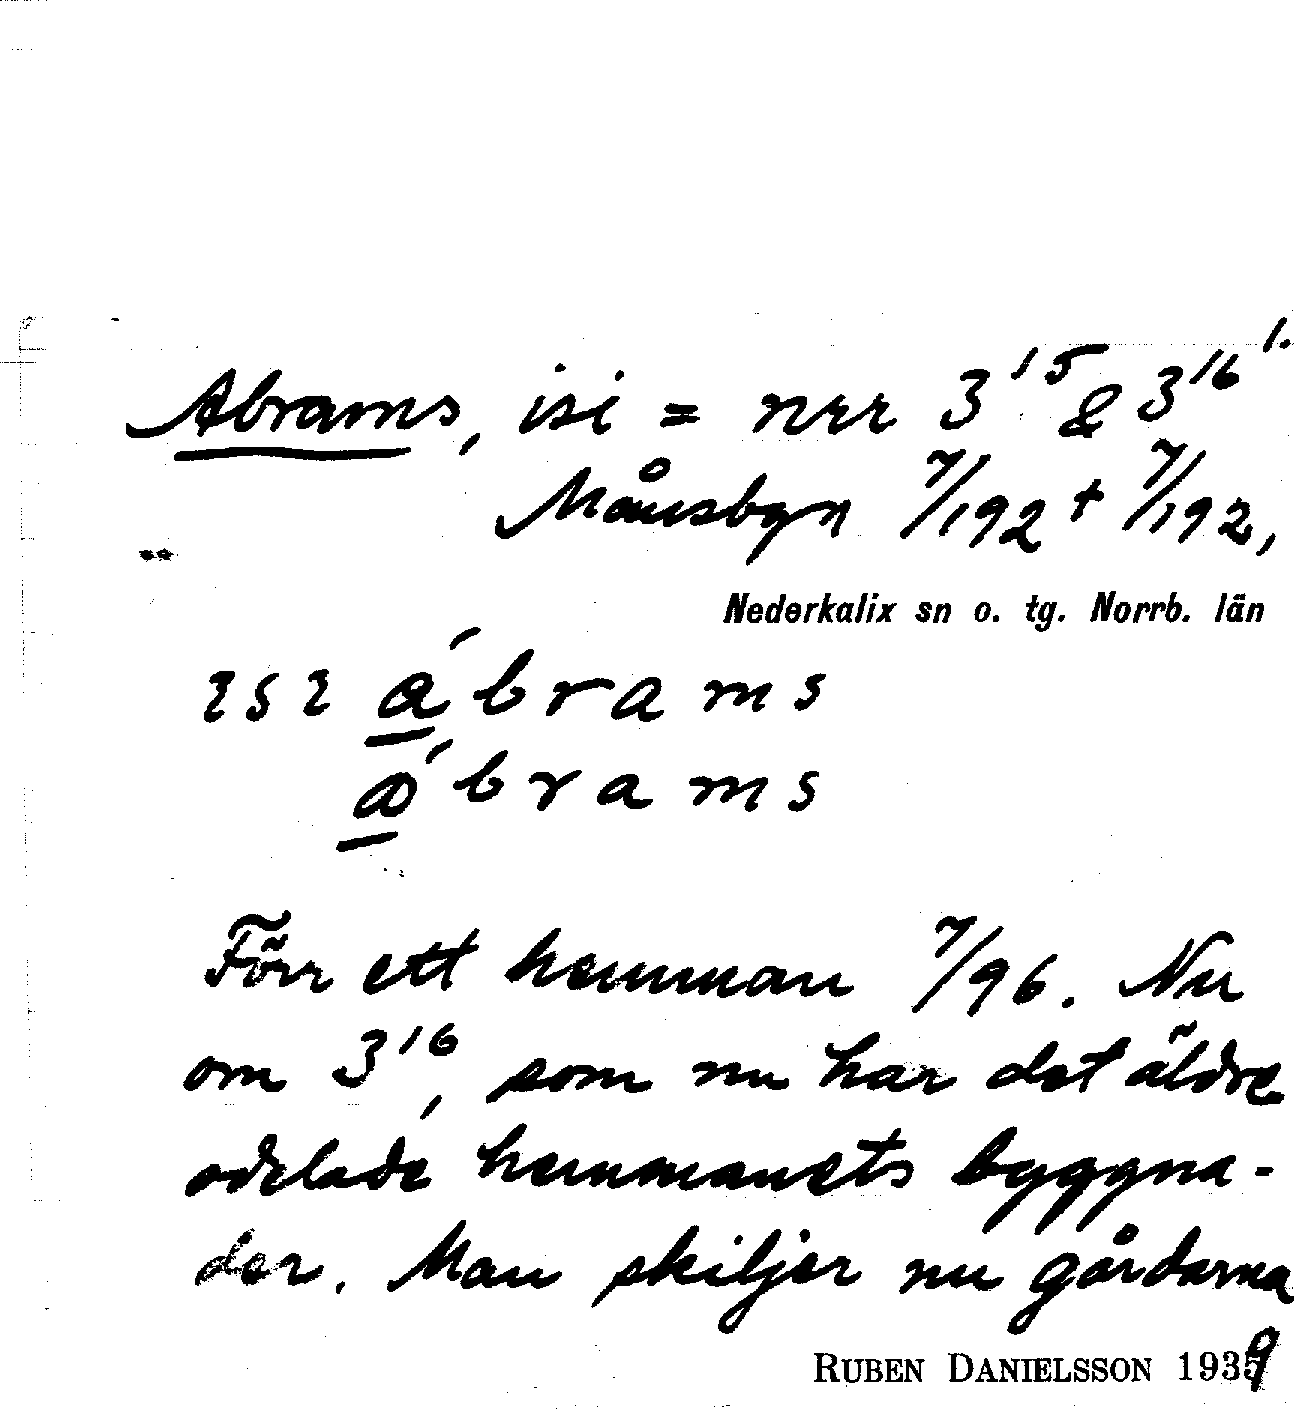 1.
Abrams, isi = nrr 3¹⁵ & 3¹⁶
Månsbyn 7/192 + 7/192,
Nederkalix sn o. tg. Norrb. län
ábrams
ábrams
Förr ett hemman 7/96. Nu
om 3¹⁶, som nu har det äldre
odelade hemmanets byggna-
der. Man skiljer nu gårdarna
RUBEN DANIELSSON 1939